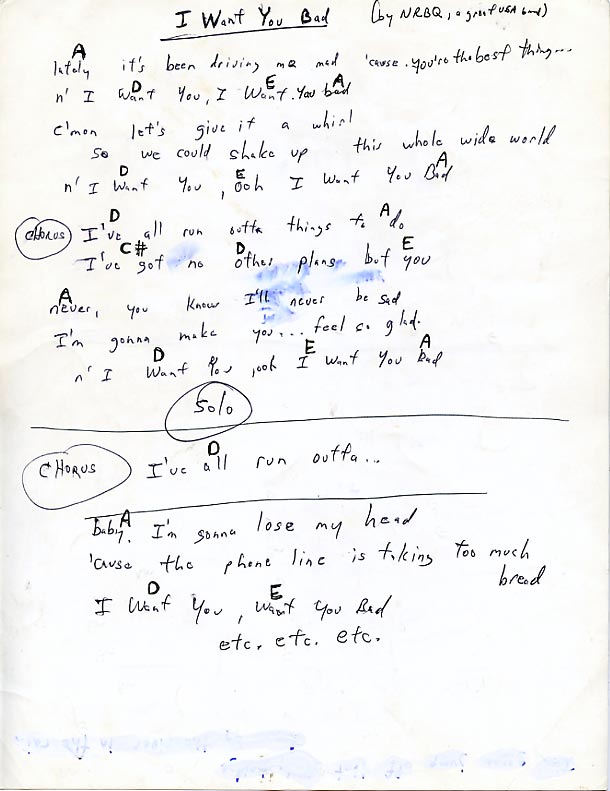 I Want You Bad (by NRBQ, a great USA band)
A
lately it's been driving me mad 'cause you're the best thing...
D E A
n' I Want You, I Want You bad
c'mon let's give it a whirl
so we could shake up this whole wide world
D E A
n' I Want You, Ooh I Want You Bad
D A
CHORUS I've all run outta things to do
C# D E
I've got no other plans but you
A
never, you know I'll never be sad
I'm gonna make you... feel so glad.
D E A
n' I Want You, ooh I Want You Bad
Solo
D
CHORUS I've all run outta...
A
Baby, I'm gonna lose my head
'cause the phone line is taking too much
bread
D E
I Want You, Want You Bad
etc. etc. etc.